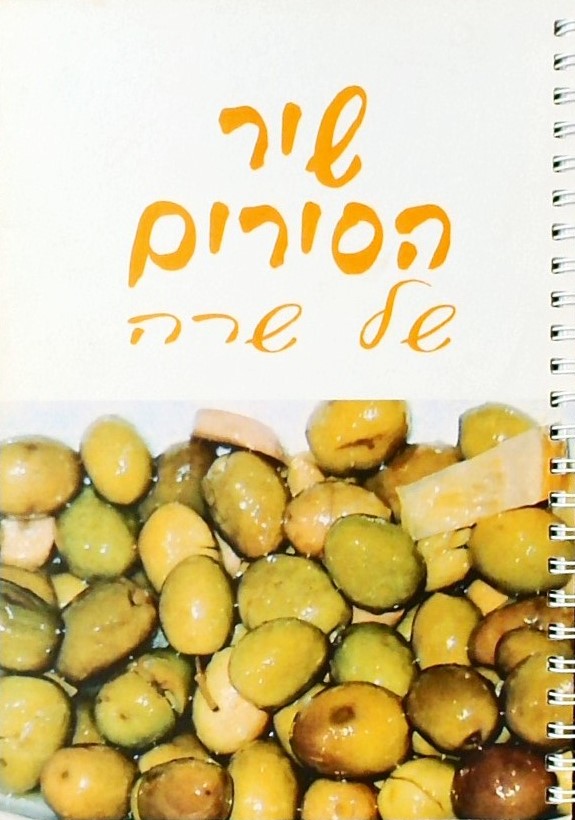 שיר
הסירים
של שרה